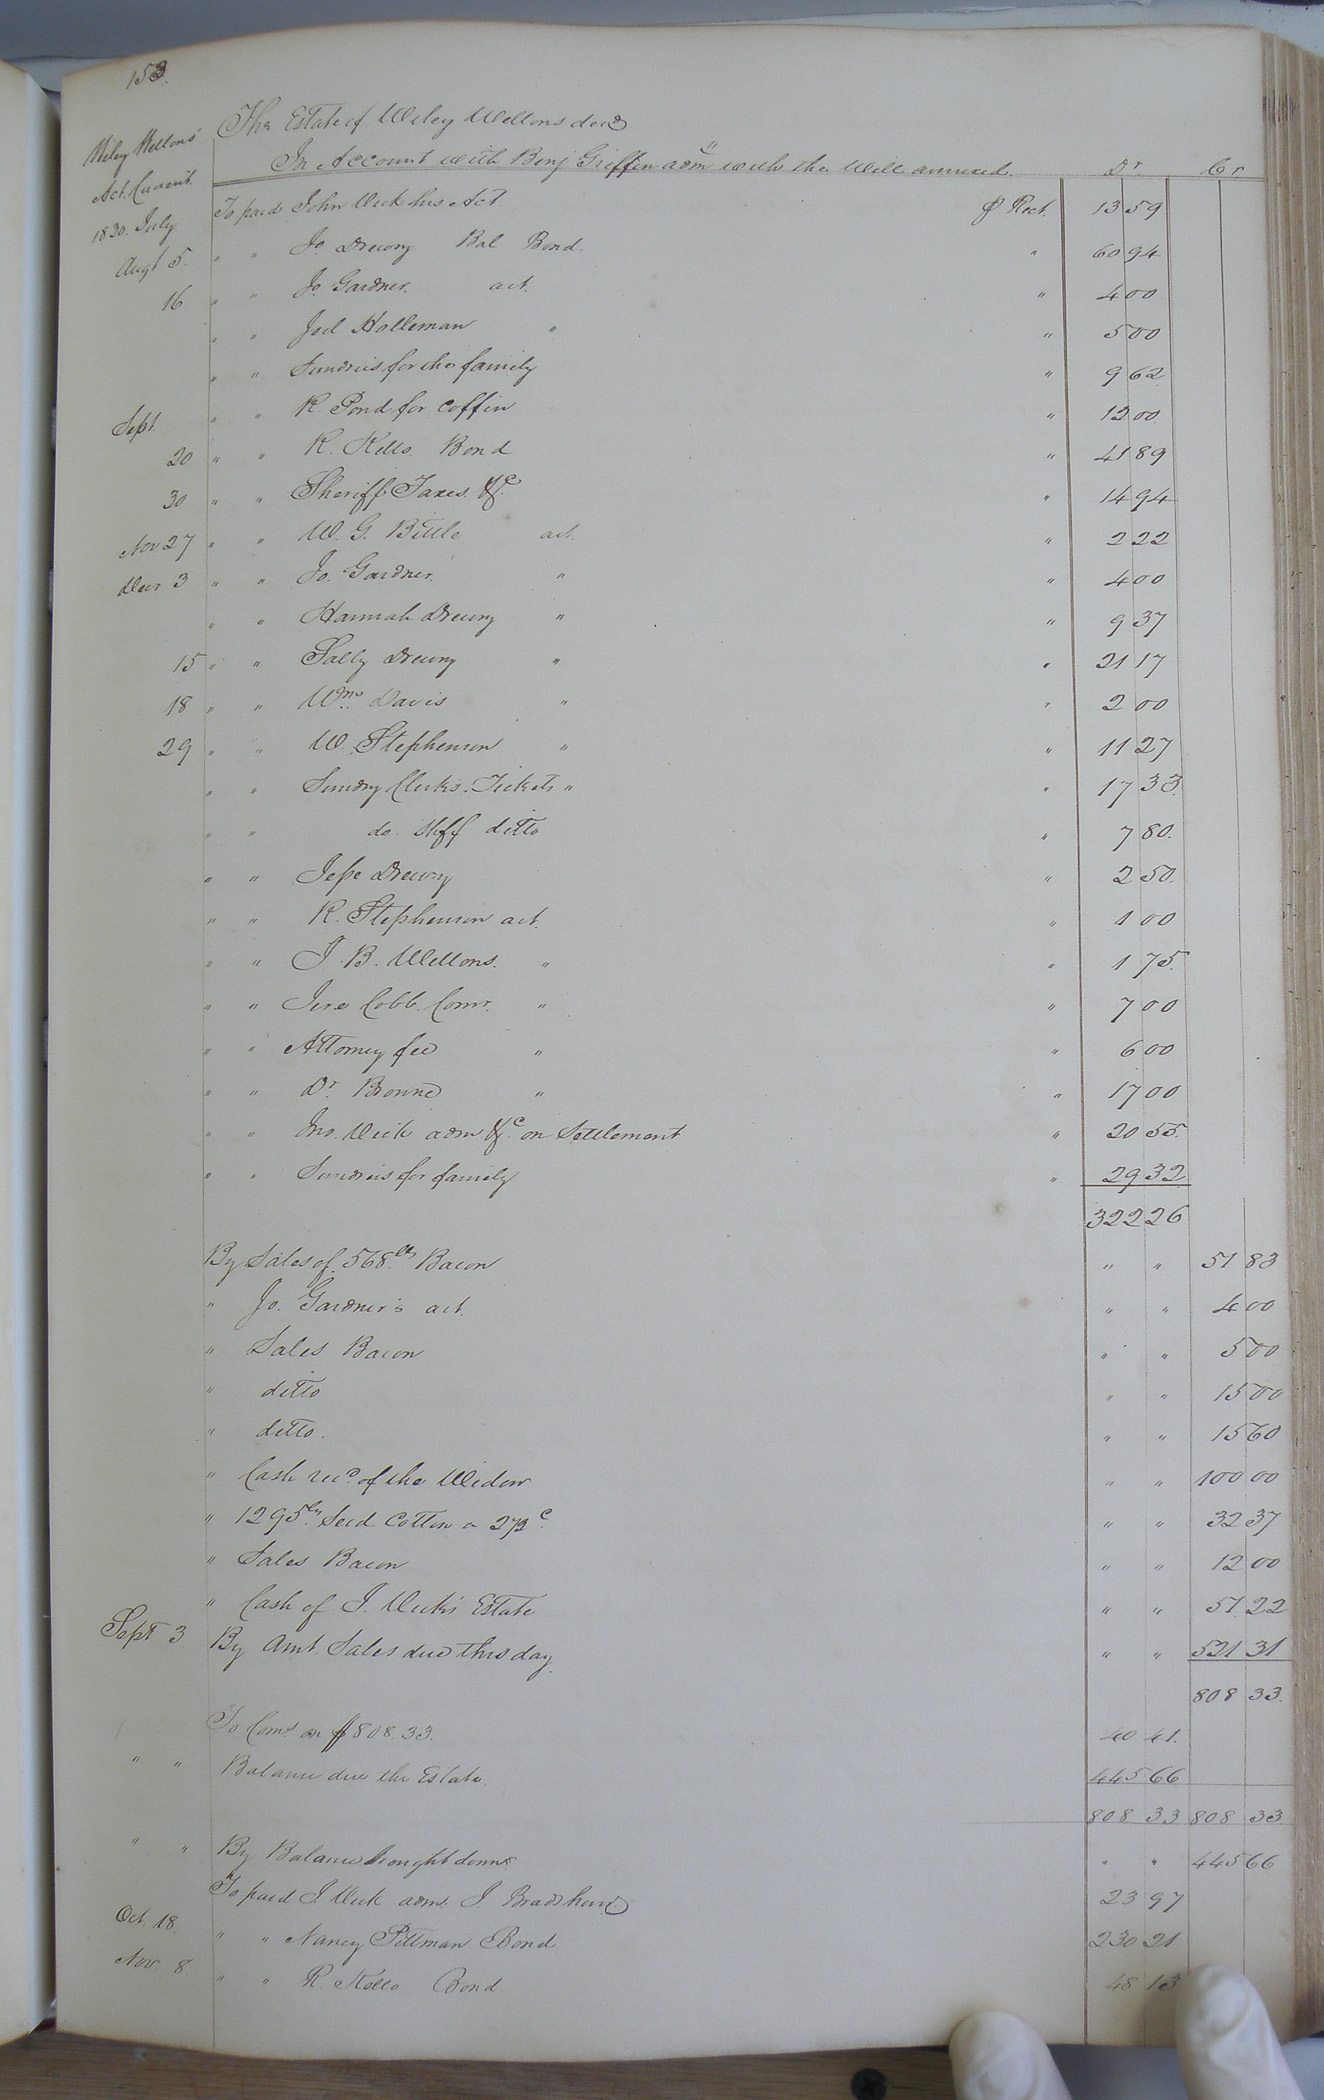 153.
The Estate of Wiley Wellons decd
Wiley Wellons'
Act. Current.
In Account with Benj Griffin adm" with the Will annexed. Dr Cr
1830. July To paid John Vick his Act ⅌ Rect. 13 59
Augt 5. " " Jo. Drewry Bal Bond. " 60 94
16 " " Jo. Gardner. act. " 4 00
" " Joel Holleman " " 5 00
" " Sundries for the family " 9 62
Sept. " " R. Pond for coffin " 12 00
20 " " R. Kello. Bond " 41 89
30 " " Sheriff Taxes. &c. " 14 94
Nov 27 " " W. G. Bittle act. " 2 22
Decr 3 " " Jo. Gardner. " " 4 00
" " Hannah Drewry " " 9 37
15 " " Sally Drewry " " 21 17
18 " " Wm. Davis " " 2 00
29 " " W. Stephenson " " 11 27
" " Sundry Clerks. Tickets " " 17 33
" " do. Shff ditto " 7 80.
" " Jesse Drewry " 2 50
" " R. Stephenson act. " 1 00
" " J. B. Wellons. " " 1 75.
" " Jere Cobb. Comr. " " 7 00
" " Attorney fee " " 6 00
" " Dr. Browne " " 17 00
" " Jno. Vick adm &c. on Settlement " 20 55.
" " Sundries for family " 29 32
322 26
By Sales of 568 lbs Bacon " " 51 83
" Jo. Gardner's act. " " 4 00
" Sales Bacon " " 5 00
" ditto " " 15 00
" ditto. " " 15 60
" Cash recd. of the Widow " " 100 00
" 1295 lbs Seed Cotton a 2½ c. " " 32 37
" Sales Bacon " " 12 00
" Cash of J. Vick's Estate " " 51 22
Sept 3 By Amt. Sales due this day. " " 521 31
808 33.
To Coms. on $808.33. 40 41.
" " Balance due the Estate 445 66
808 33 808 33
" " By Balance brought down " " 445 66
To paid J. Vick adm. J. Bradshaw 23 97
Oct. 18. " " Nancy Pittman Bond 230 21
Nov. 8. " " R. Kello Bond. 48 13